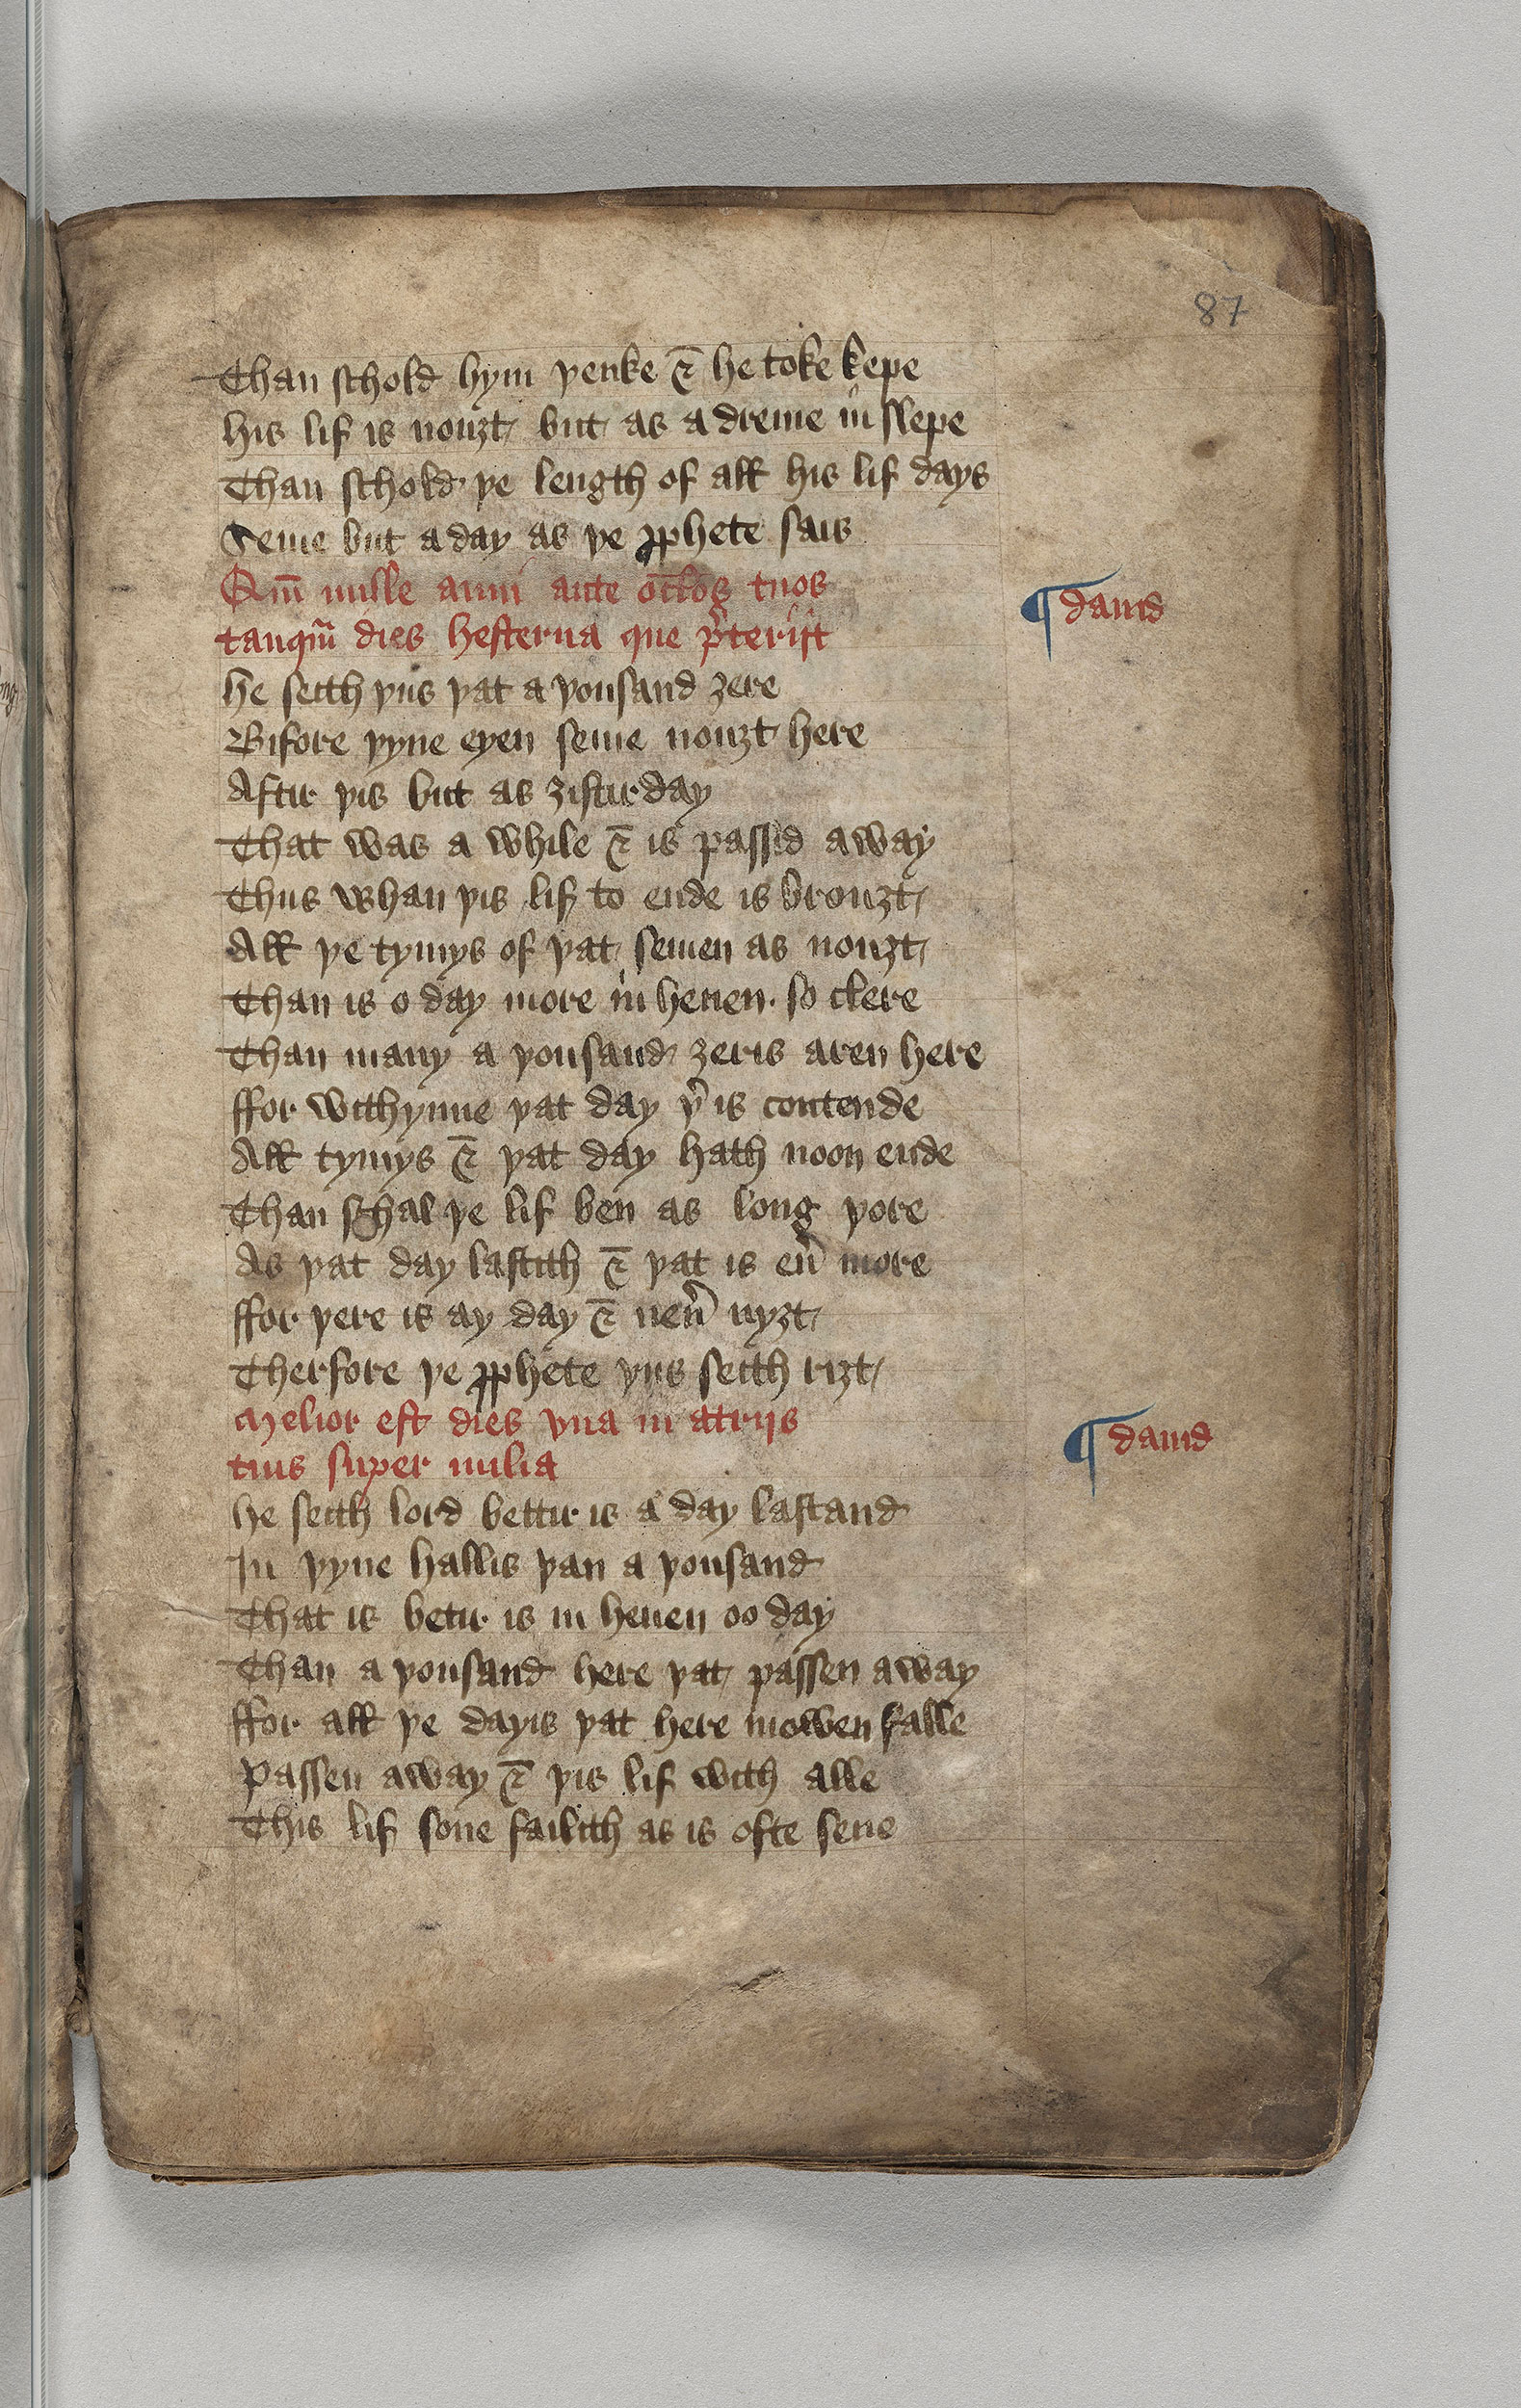 87
Than schold hym þenke ⁊ he toke kepe
his lif is nouȝt but as a dreme in slepe
Than schold þe length of all his lif days
Seme but a day as þe ꝓphete sais
Qm̄ mille anni ante oc̄los tuos
¶ dauid
tanqm̄ dies hesterna que p̉teriit
he seith þus þat a þousand ȝere
Bifore þyne eyen seme nouȝt here
Aftir þis but as ȝistirday
That was a while ⁊ is passid away
Thus whan þis lif to ende is brouȝt
All þe tymys of þat semen as nouȝt
Than is o day more in heuen · so clere
Than many a þousand ȝeris aren here
ffor withynne þat day þ̉ is contende
All tymys ⁊ þat day hath noon ende
Than schal þe lif ben as long þore
As þat day lastith ⁊ þat is eủ more
ffor þere is ay day ⁊ neủ nyȝt
Therfore þe ꝓphete þus seith riȝt
Melior est dies vna in atrijs
¶ dauid
tuis super milia
he seith lord bettir is a day lastand
In þyne hallis þan a þousand
That is betir is in heuen oo day
Than a þousand here þat passen away
ffor all þe dayis þat here mowen falle
Passen away ⁊ þis lif with alle
This lif sone failith as is ofte sene